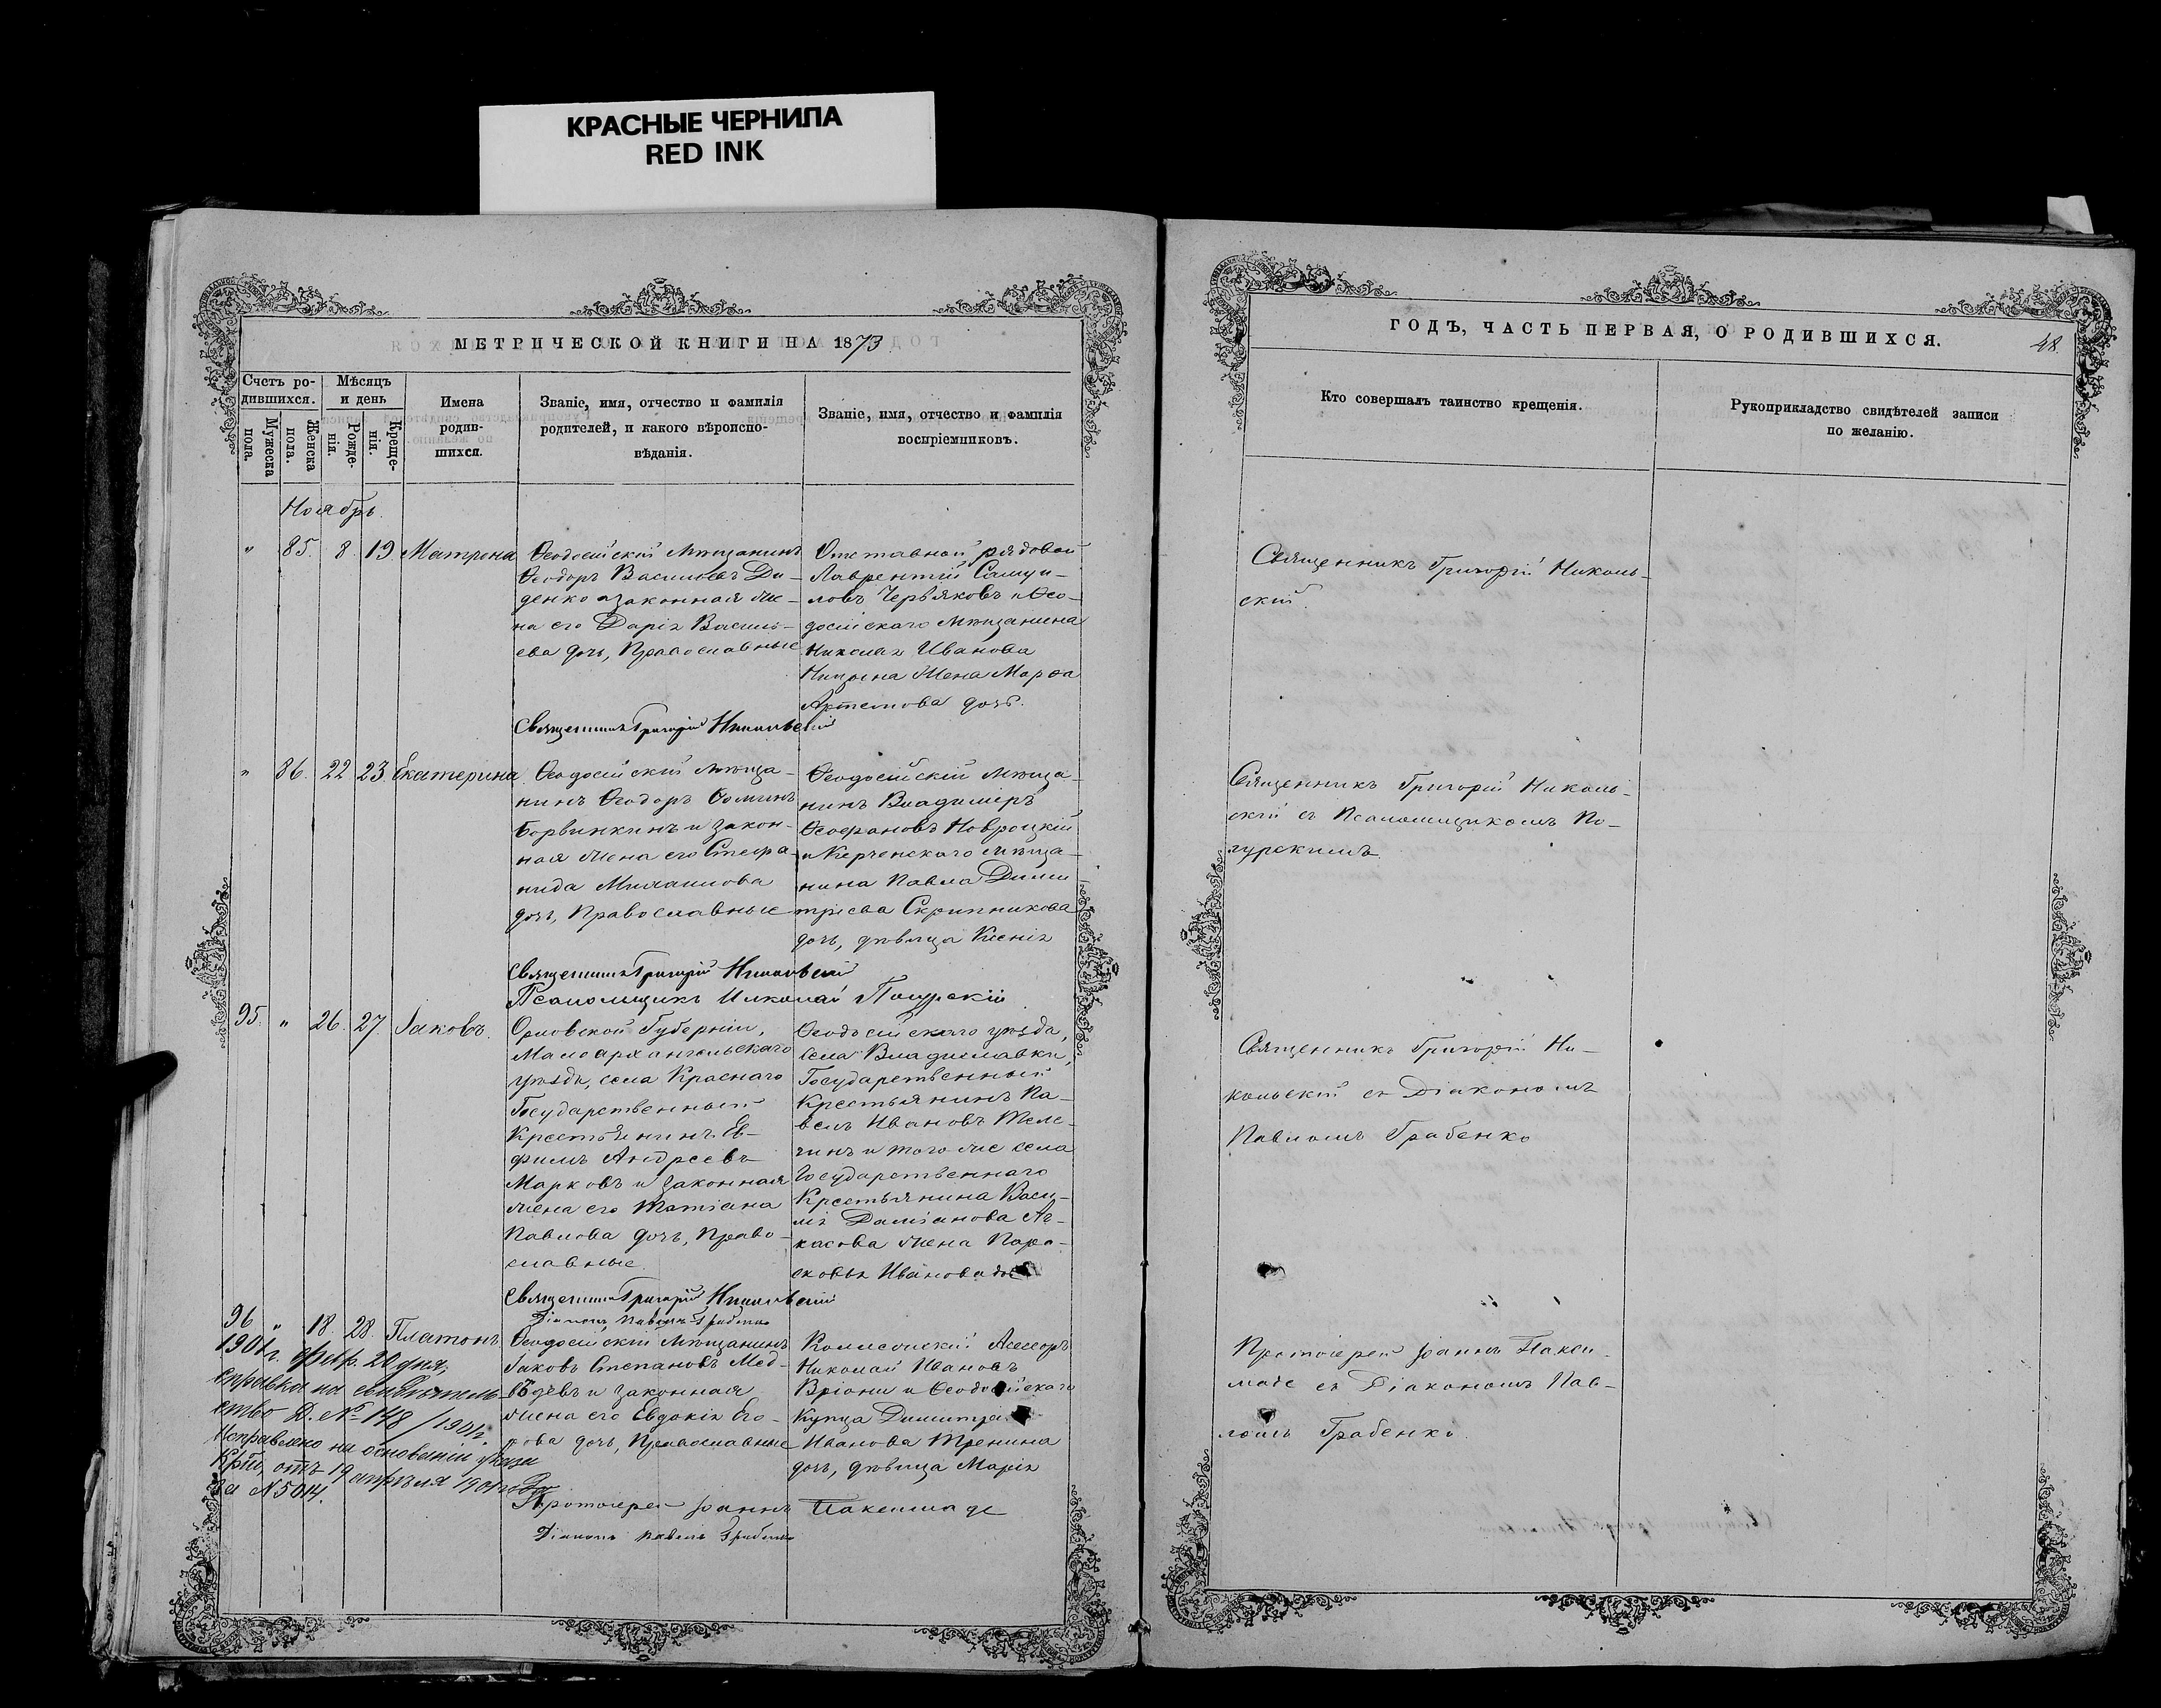 КРАСНЫЕ ЧЕРНИЛА
RED INK
МЕТРИЧЕСКОЙ КНИГИ НА 1873
Счетъ ро-
дившихся.
Мужеска
пола.
Женска
пола.
Мѣсяцъ
и день
Рожде-
нія.
Креще-
нія.
Имена
родив-
шихся.
Званіе, имя, отчество и фамилія
родителей, и какого вѣроиспо-
вѣданія.
Званіе, имя, отчество и фамилія
воспріемниковъ.
Ноябрь.
" 85. 8. 19 Матрона
Ѳеодосійскій Мѣщанинъ
Ѳеодоръ Васильевъ Ди-
денко и законная же-
на его Дарія Василь-
ева дочь, Православные
Отставной рядовой
Лаврентій Самуи-
ловъ Червяковъ и Ѳео-
досійскаго Мѣщанина
Николая Иванова
жена Марѳа
Артемова дочь.
Священникъ Григорій Никольскій
" 86. 22 23 Екатерина
Ѳеодосійскій мѣща-
нинъ Ѳеодоръ Ѳоминъ
Борвинкинъ и закон-
ная жена его Стефа-
нида Михаилова
дочь, Православные
Ѳеодосійскій мѣща-
нинъ Владиміръ
Ѳеофановъ Новроцкій
и Керченскаго мѣща-
нина Павла Дими
тріева Скрипникова
дочь, дѣвица Ксенія
Священникъ Григорій Никольскій
Псаломщикъ Николай Погурскій
95. " 26. 27 Іаковъ.
Орловской Губерніи,
Малоархангельскаго
уѣзда, села Краснаго
Государственный
Крестьянинъ Ев-
фимъ Андреевъ
Марковъ и законная
жена его Татіана
Павлова дочь, Право-
славные.
Ѳеодосійскаго уѣзда,
села Владиславки,
Государственный
Крестьянинъ Па-
велъ Ивановъ Теле-
гинъ и того же села
Государственнаго
Крестьянина Васи-
лія Даміанова Ар-
касова жена Пара-
сковья Иванова
Священникъ Григорій Никольскій
Діаконъ Павелъ Грабенко
96 " 18. 28. Платонъ
1901 г. февр. 20 дня,
справка на свидѣтель-
ство Д. № 148/1901 г.
Исправлено на основаніи указа
отъ 19 апрѣля 1901 года
за № 5014.
Ѳеодосійскій Мѣщанинъ
Іаковъ Степановъ Мед-
вѣдевъ и законная
жена его Евдокія Его-
рова дочь, Православные
Коллежскій Асессоръ
Николай Ивановъ
Вріони и Ѳеодосійскаго
Купца Димитрія
Иванова Тренина
дочь, дѣвица Марія
Протоіерей Іоаннъ Паксимаде
Діаконъ Павелъ Грабенко
ГОДЪ, ЧАСТЬ ПЕРВАЯ, О РОДИВШИХСЯ.
48.
Кто совершалъ таинство крещенія.
Рукоприкладство свидѣтелей записи
по желанію.
Священникъ Григорій Николь-
скій.
Священникъ Григорій Николь-
скій съ Псаломщикомъ По-
гурскимъ.
Священникъ Григорій Ни-
кольскій съ Діакономъ
Павломъ Грабенко
Протоіерей Іоаннъ Пакси-
маде съ Діакономъ Пав-
ломъ Грабенко.